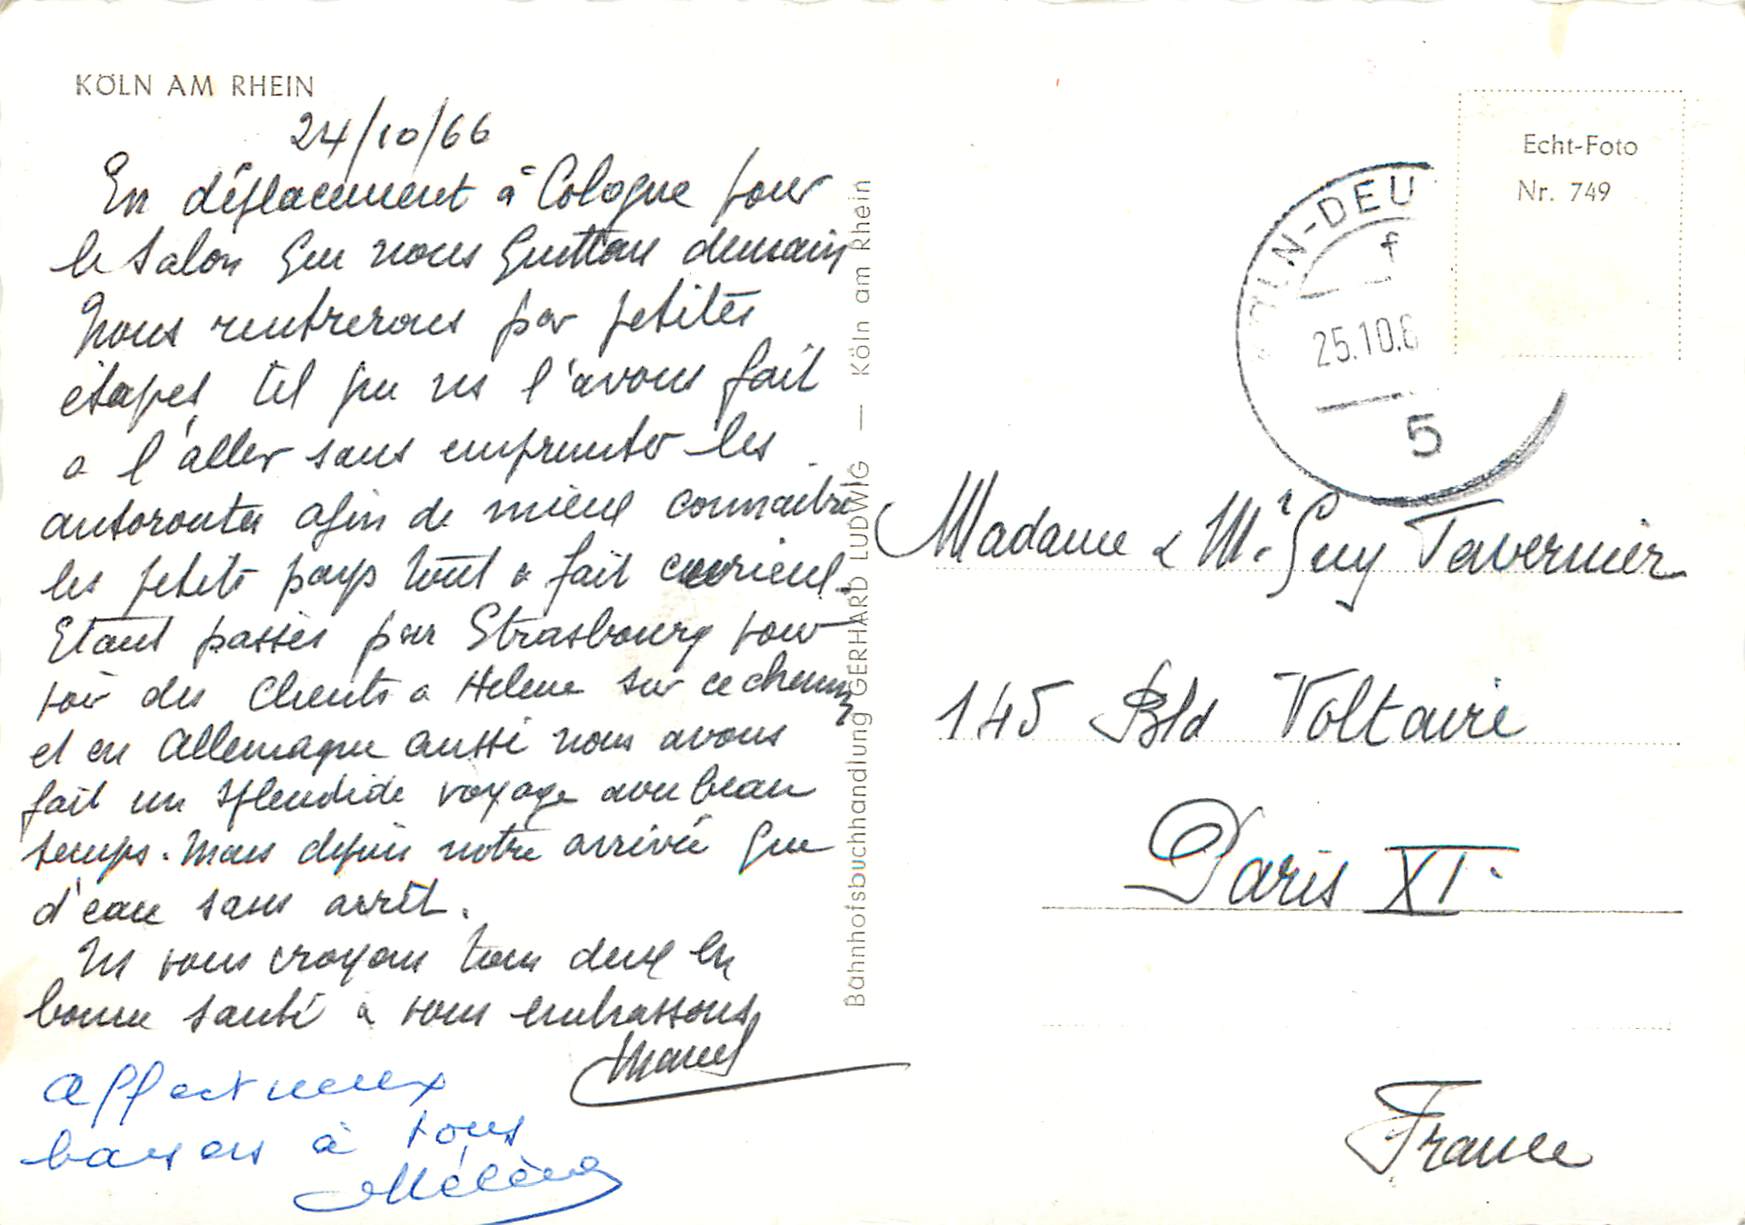 KÖLN AM RHEIN
24/10/66
En déplacement à Cologne pour
le Salon que nous quittons demain
Nous rentrerons par petites
étapes tel que ns l'avons fait
a l'aller sans emprunter les
autoroutes afin de mieux connaitre
les petits pays tout a fait curieux.
Etant passés par Strasbourg pour
voir des Clients a Helene sur ce chemin
et en Allemagne aussi nous avons
fait un splendide voyage avec beau
temps. Mais depuis notre arrivée que
d'eau sans arrêt.
Ns vous croyons tous deux en
bonne santé & vous embrassons
Marcel
affectueux
baisers à vous
Hélène
Bahnhofsbuchhandlung GERHARD LUDWIG — Köln am Rhein
Echt-Foto
Nr. 749
KÖLN-DEU
f
25.10.6
5
Madame & Mr Guy Tavernier
145 Bld Voltaire
Paris XI.
France